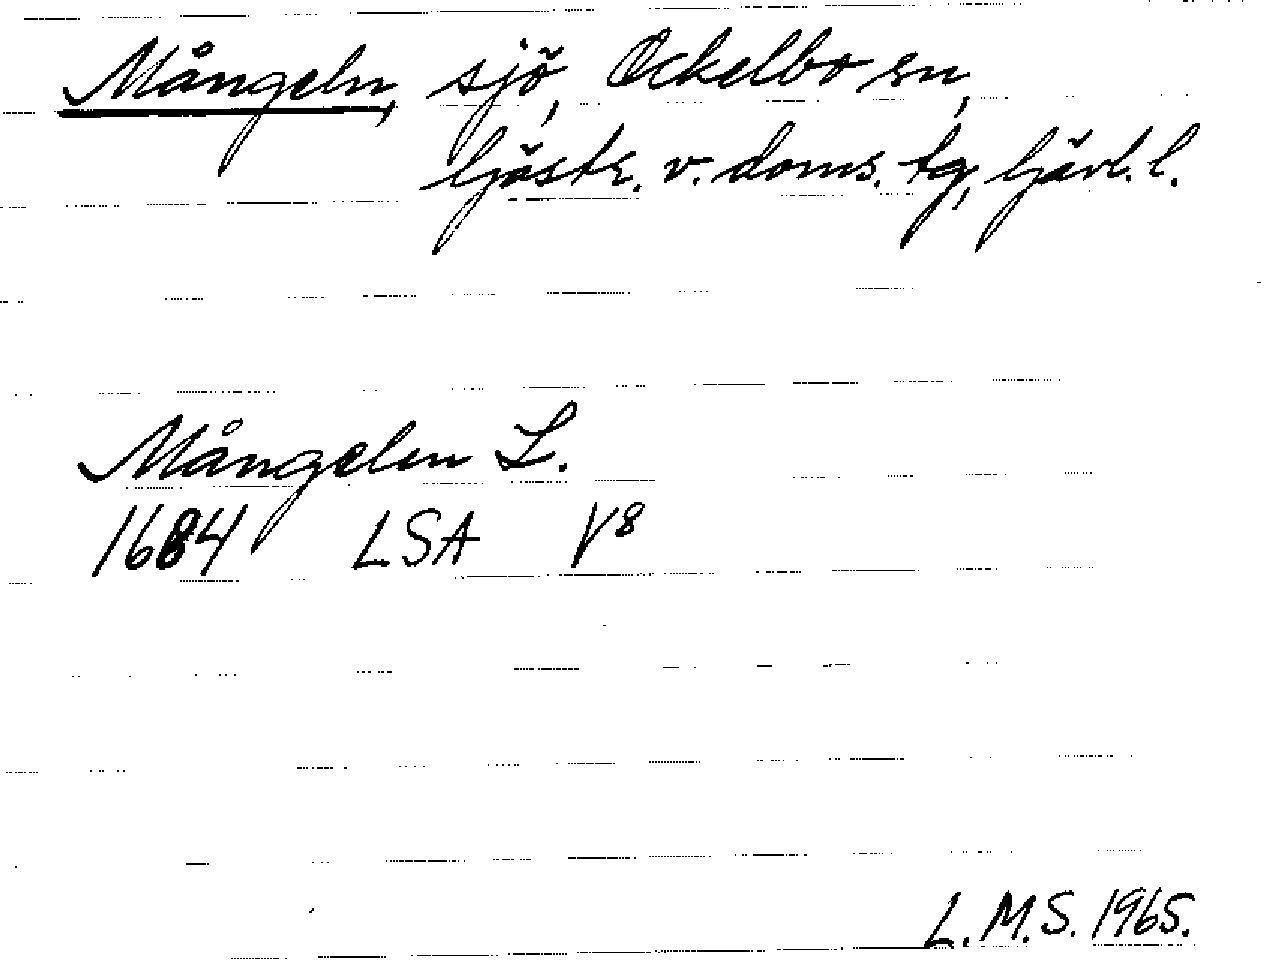 Mångeln, sjö, Ockelbo sn,
Gästr. v. doms. tg, Gävl. l.
Mångelen L.
1684 LSA V8
L.M.S. 1965.